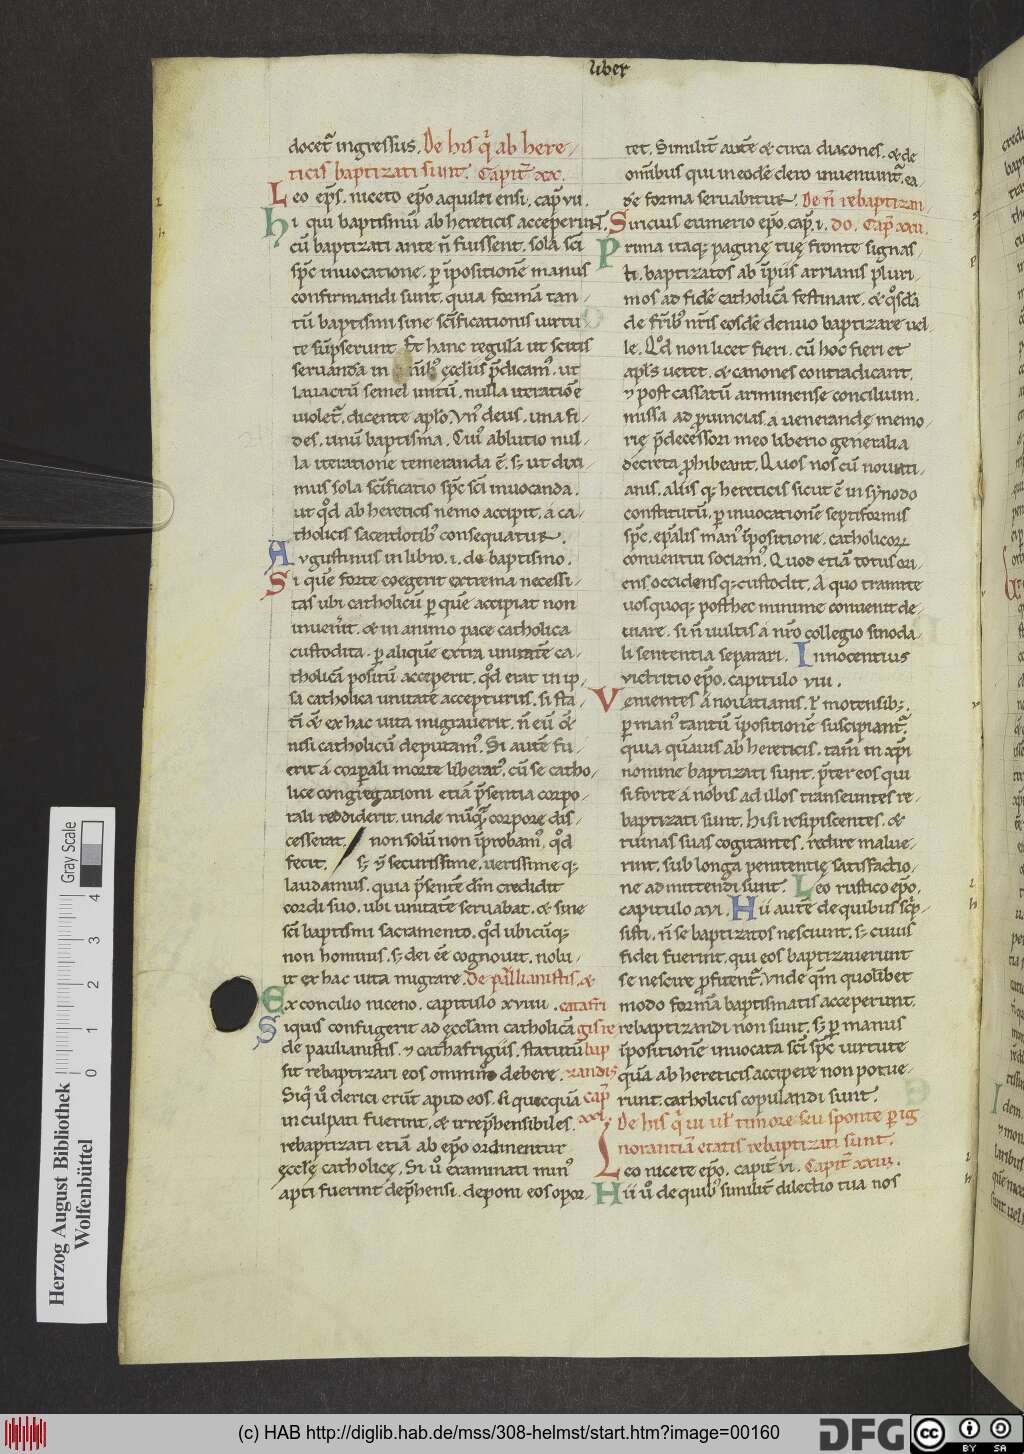 liber
docet᷑ ingressus. De his q̇ ab here-
ticis baptizati sunt. Capit̄ xx.
Leo ep̄s. niceto ep̄o aquilei ensi. cap̄ vii.
Hi qui baptismū ab hereticis acceperunt.
cū baptizati ante n̄ fuissent. sola sc̄i
sp̄c inuocatione. ꝑ īpositionē manus
confirmandi sunt. quia formā tan-
tū baptismi sine sc̄ificationis uirtu-
te sūpserunt. Et hanc regulā ut scitis
seruandā in ęcclīis p̄dicam᷒. ut
lauacrū semel initū. nulla iteratiōe
uiolet᷑. dicente apl̄o. Vn᷒ deus. una fi-
des. unū baptisma. Cui᷒ ablutio nul-
la iteratione temeranda ē. sꝫ ut dixi-
mus sola sc̄ificatio sp̄c sc̄i inuocanda.
ut qd̄ ab hereticis nemo accipit. a ca-
tholicis sacerdotib᷒ consequatur.
Augustinus in libro .i. de baptismo.
Si quē forte coegerit extrema necessi-
tas ubi catholicū ꝑ quē accipiat non
inuen̄it. & in animo pace catholica
custodita. ꝑ aliquē extra unitatē ca-
tholicā positū acceperit. qd̄ erat in ip-
sa catholica unitate accepturus. si sta-
tī & ex hac uita migrauerit. n̄ eū
nisi catholicū deputam᷒. Si autē fu-
erit a corꝑali morte liberat᷒. cū se catho-
lice congregationi etiā p̄sentia corpo-
rali reddiderit. unde nūq̄ corpore dis-
cesserat. non solū non īprobam᷒. qd̄
fecit. sꝫ & securissime. uerissime qꝫ
laudamus. quia p̄sentē dm̄ credidit
cordi suo. ubi unitatē seruabat. & sine
sc̄i baptismi sacramento. qd̄ ubicūqꝫ
non hominis. sꝫ dei eē cognouit. nolu-
it ex hac uita migrare. De paulianistis. &
Ex concilio niceno. capitulo xviiii. catafri
Siquis confugerit ad ęcclam catholicā gis re
de paulianistis. & cathafrigiis. statutū bap
sit rebaptizari eos omnino debere. tizandis
Siq̇ u᷎ clerici erūt apud eos. si quecquā cap̄
inculpati fuerint. & irrep̄hensibiles. xxi.
rebaptizati etiā ab ep̄o ordinentur
ęcclę catholicę. Si u᷎ examinati min᷒
apti fuerint dep̄hensi. deponi eos opor-
tet. Similit̄ autē & circa diacones. & de
omībus qui in eodē clero inueniunt᷑. ea-
dē forma seruabitur. De n̄ rebaptizan-
Siricius eumerio ep̄o. cap̄. i. do. Cap̄ xxii.
Prima itaqꝫ paginę tuę fronte signas-
ti. baptizatos ab īpiis arrianis pluri-
mos ad fidē catholicā festinare. & qosdā
de fr̄ib᷒ nr̄is eosdē denuo baptizare uel-
le. Qd̄ non licet fieri. cū hoc fieri et
apl̄s uetet. & canones contradicant.
& post cassatū ariminense concilium.
missa ad ꝓuincias. a uenerandę memo-
rię p̄decessori meo liberio generalia
decreta ꝓhibeant. Quos nos cū nouati-
anis. aliis qꝫ hereticis sicut ē in synodo
constitutū. ꝑ inuocationē septiformis
sp̄c. ep̄alis man᷒ īpositione. catholicoꝝ
conuentui sociam᷒. Quod etiā totus ori-
ens occidens qꝫ custodit. A quo tramite
uos quoqꝫ posthec minime conuenit de-
uiare. si n̄ uultis a nr̄o collegio sinoda-
li sententia separari. Innocentius
victritio ep̄o. capitulo viii.
Venientes a nouatianis. ł motensibꝫ.
ꝑ man᷒ tantū īpositionē suscipiant᷑.
quia quāuis ab hereticis. tam̄ in xp̄i
nomine baptizati sunt. p̄ter eos qui
si forte a nobis ad illos transeuntes re-
baptizati sunt. hi si resipiscentes. &
ruinas suas cogitantes. redire malue-
rint. sub longa penitentię satisfactio-
ne admittendi sunt. Leo rustico ep̄o.
capitulo xvi. Hii autē de quibus scp̄-
sisti. n̄ se baptizatos nesciunt. sꝫ cuius
fidei fuerint. qui eos baptizauerunt
se nescire ꝓfitent᷑. Vnde qm̄ quolibet
modo formā baptismatis acceperunt.
rebaptizandi non sunt. sꝫ ꝑ manus
īpositionē inuocata sc̄i sp̄c uirtute
quā ab hereticis accipere non potue-
runt. catholicis copulandi sunt.
De his q̇ ui ul̄ timore seu sponte ꝑ ig
norantiā etatis rebaptizati sunt.
Leo nicete ep̄o. capit̄ vi. Capit̄ xxiii.
Hii u᷎ de quib᷒ similit̄ dilectio tua nos
Gray Scale
4 3 2 1 0
Herzog August Bibliothek
Wolfenbüttel
(c) HAB http://diglib.hab.de/mss/308-helmst/start.htm?image=00160
DFG
cc BY SA